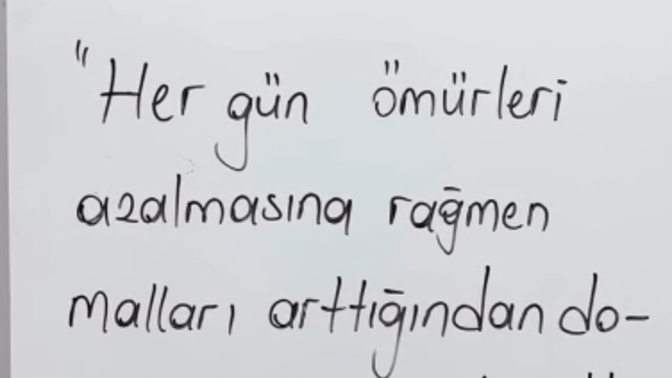 "Her gün ömürleri
azalmasına rağmen
malları arttığından do-